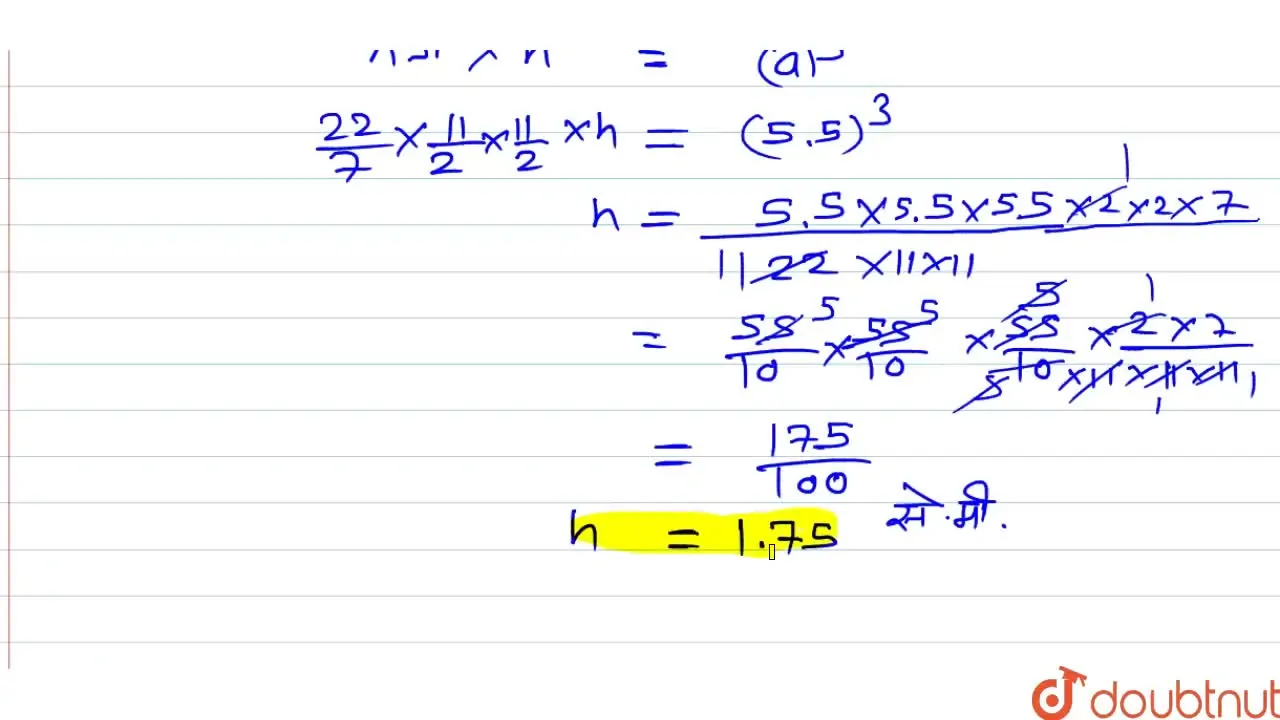 = (a)³
22/7 × 11/2 × 11/2 × h = (5.5)³
h = 5.5 × 5.5 × 55 × 2 1 × 2 × 7 / 11 22 × 11 × 11
= 55 5/10 × 55 5/10 × 55 5/10 5 × 2 1 × 7 / × 11 × 11 × 11 1 1
= 175/100
h = 1.75 से.मी.
doubtnut